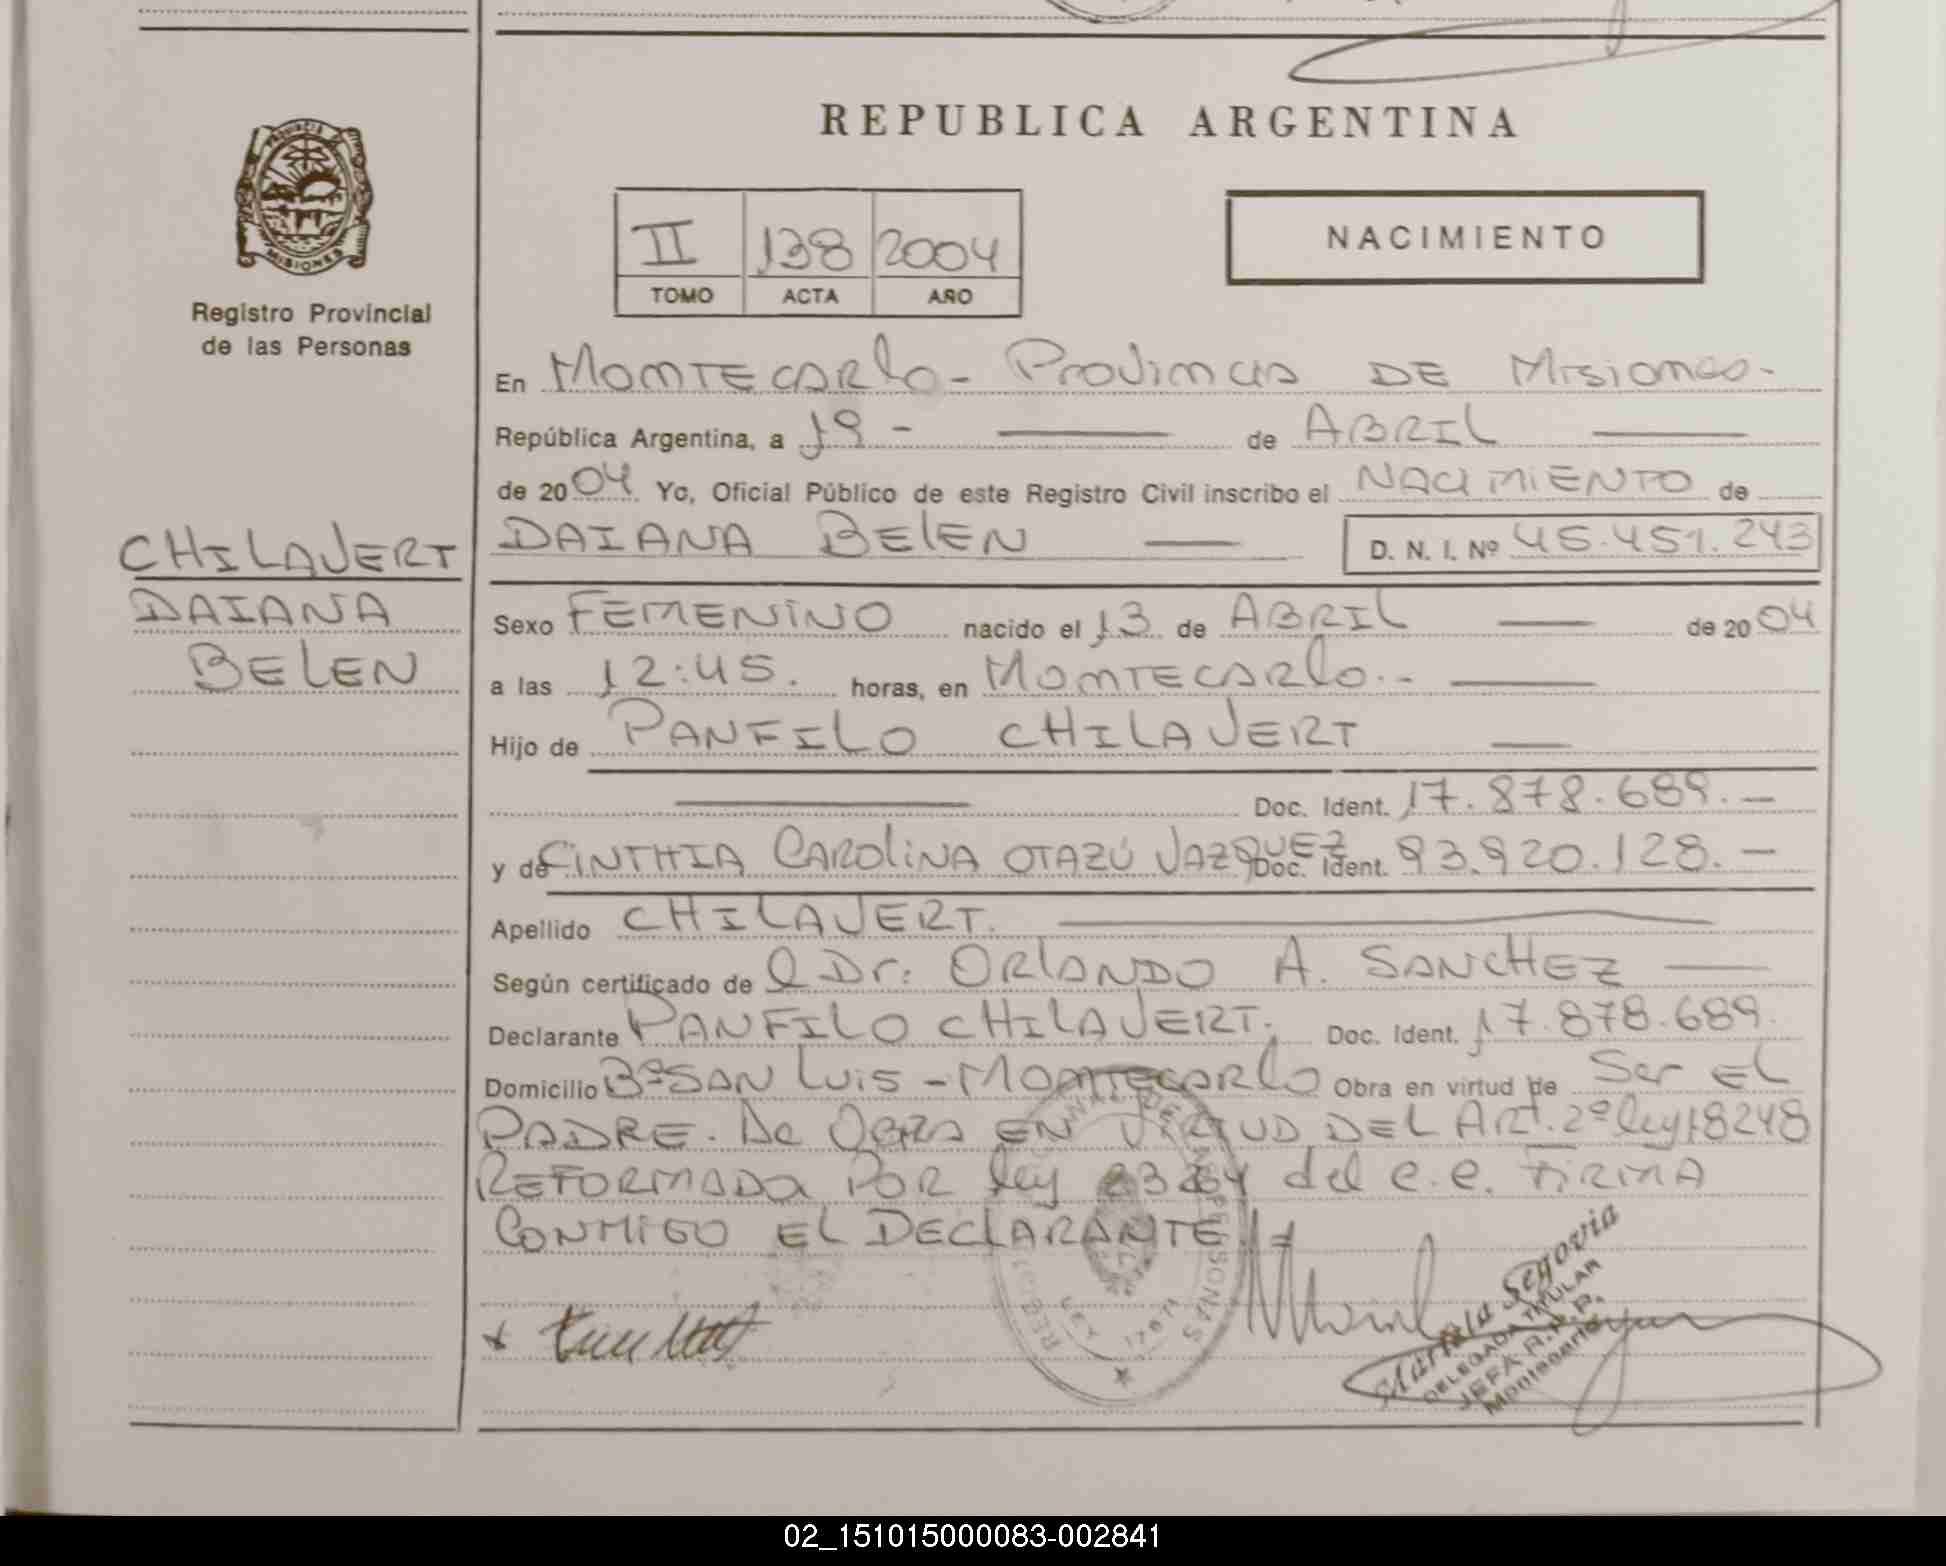 REPUBLICA ARGENTINA
PROVINCIA DE
MISIONES
Registro Provincial
de las Personas
II 138 2004
TOMO ACTA AÑO
NACIMIENTO
En MONTECARLO - PROVINCIA DE MISIONES -
República Argentina, a 19 - de ABRIL
de 2004 Yo, Oficial Público de este Registro Civil inscribo el NACIMIENTO de
CHILAVERT
DAIANA
BELEN
DAIANA BELEN D. N. I. Nº 45.451.243
Sexo FEMENINO nacido el 13 de ABRIL de 2004
a las 12:45. horas, en MONTECARLO.-
Hijo de PANFILO CHILAVERT
Doc. Ident. 17.878.689.-
y de CINTHIA CAROLINA OTAZÚ VAZQUEZ Doc. Ident. 93.920.128.-
Apellido CHILAVERT.
Según certificado de l Dr: ORLANDO A. SANCHEZ
Declarante PANFILO CHILAVERT. Doc. Ident. 17.878.689.
Domicilio Bº SAN LUIS - MONTECARLO Obra en virtud de Ser EL
PADRE. De OBRA EN VIRTUD DEL ART. 2º ley 18248
REFORMADA POR ley 23264 del c.c. FIRMA
CONMIGO EL DECLARANTE.
Mariela Segovia
DELEGADA TITULAR
JEFA R.P.P.
Montecarlo
02_151015000083-002841